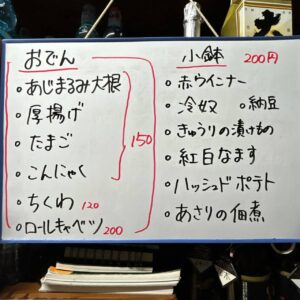 おでん
・あじまるみ大根
・厚揚げ
・たまご
・こんにゃく
150
・ちくわ 120
・ロールキャベツ 200
小鉢 200円
・赤ウインナー
・冷奴 ・納豆
・きゅうりの漬けもの
・紅白なます
・ハッシュドポテト
・あさりの佃煮